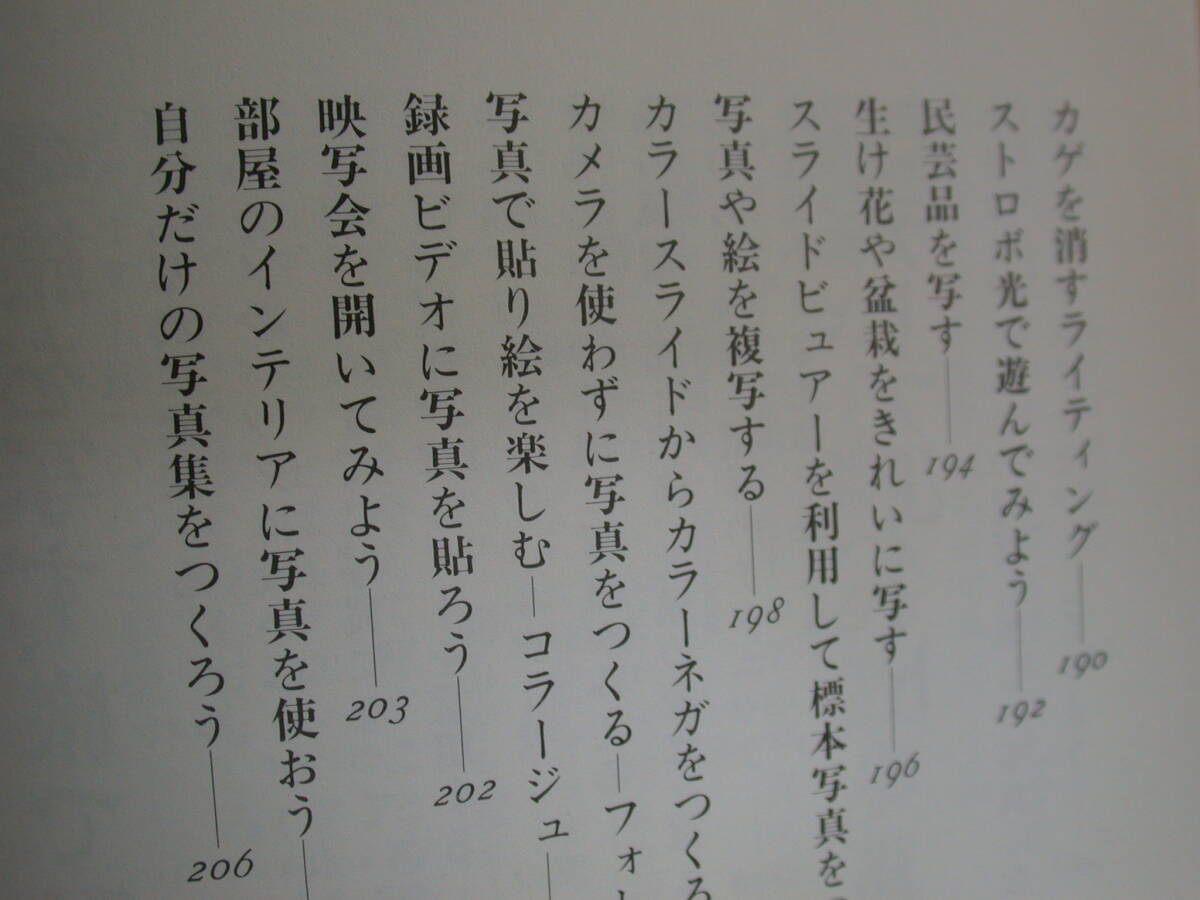 カゲを消すライティング——190
ストロボ光で遊んでみよう——192
民芸品を写す——194
生け花や盆栽をきれいに写す——196
スライドビュアーを利用して標本写真を
写真や絵を複写する——198
カラースライドからカラーネガをつくる
カメラを使わずに写真をつくる—フォト
写真で貼り絵を楽しむ—コラージュ—
録画ビデオに写真を貼ろう——202
映写会を開いてみよう——203
部屋のインテリアに写真を使おう—
自分だけの写真集をつくろう——206